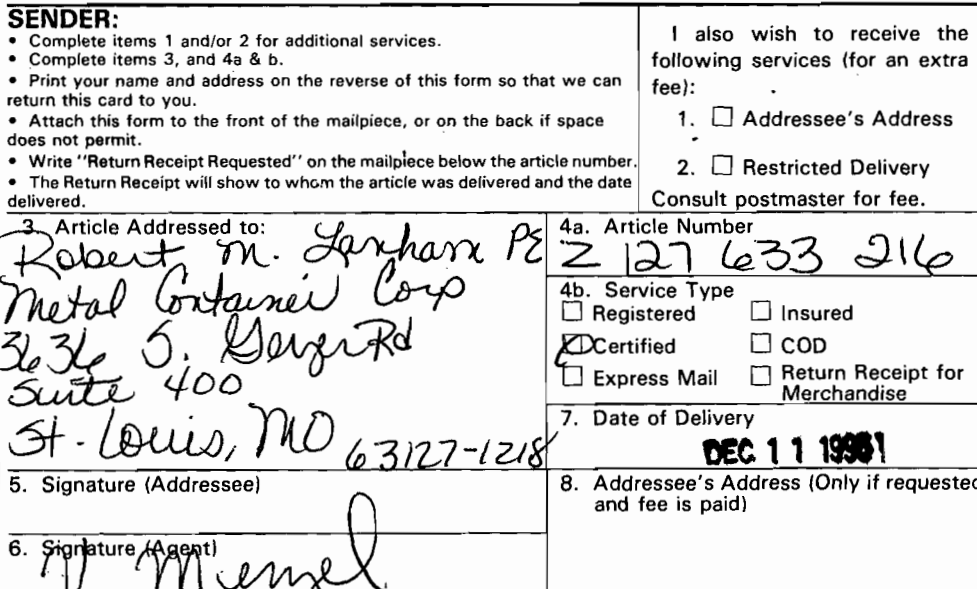 SENDER:
• Complete items 1 and/or 2 for additional services.
• Complete items 3, and 4a & b.
• Print your name and address on the reverse of this form so that we can
return this card to you.
• Attach this form to the front of the mailpiece, or on the back if space
does not permit.
• Write "Return Receipt Requested" on the mailpiece below the article number.
• The Return Receipt will show to whom the article was delivered and the date
delivered.
I also wish to receive the
following services (for an extra
fee):
1. ☐ Addressee's Address
2. ☐ Restricted Delivery
Consult postmaster for fee.
3. Article Addressed to:
Robert M. Lanham PE
Metal Container Corp
3636 S. Geyer Rd
Suite 400
St. Louis, MO 63127-1218
4a. Article Number
Z 127 633 216
4b. Service Type
☐ Registered ☐ Insured
☒ Certified ☐ COD
☐ Express Mail ☐ Return Receipt for
Merchandise
7. Date of Delivery
DEC 11
5. Signature (Addressee)
8. Addressee's Address (Only if requested
and fee is paid)
6. Signature (Agent)
Menzel